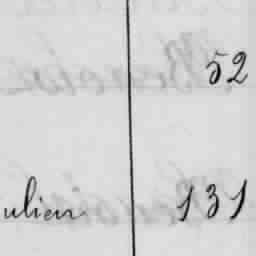 52
ulien 131